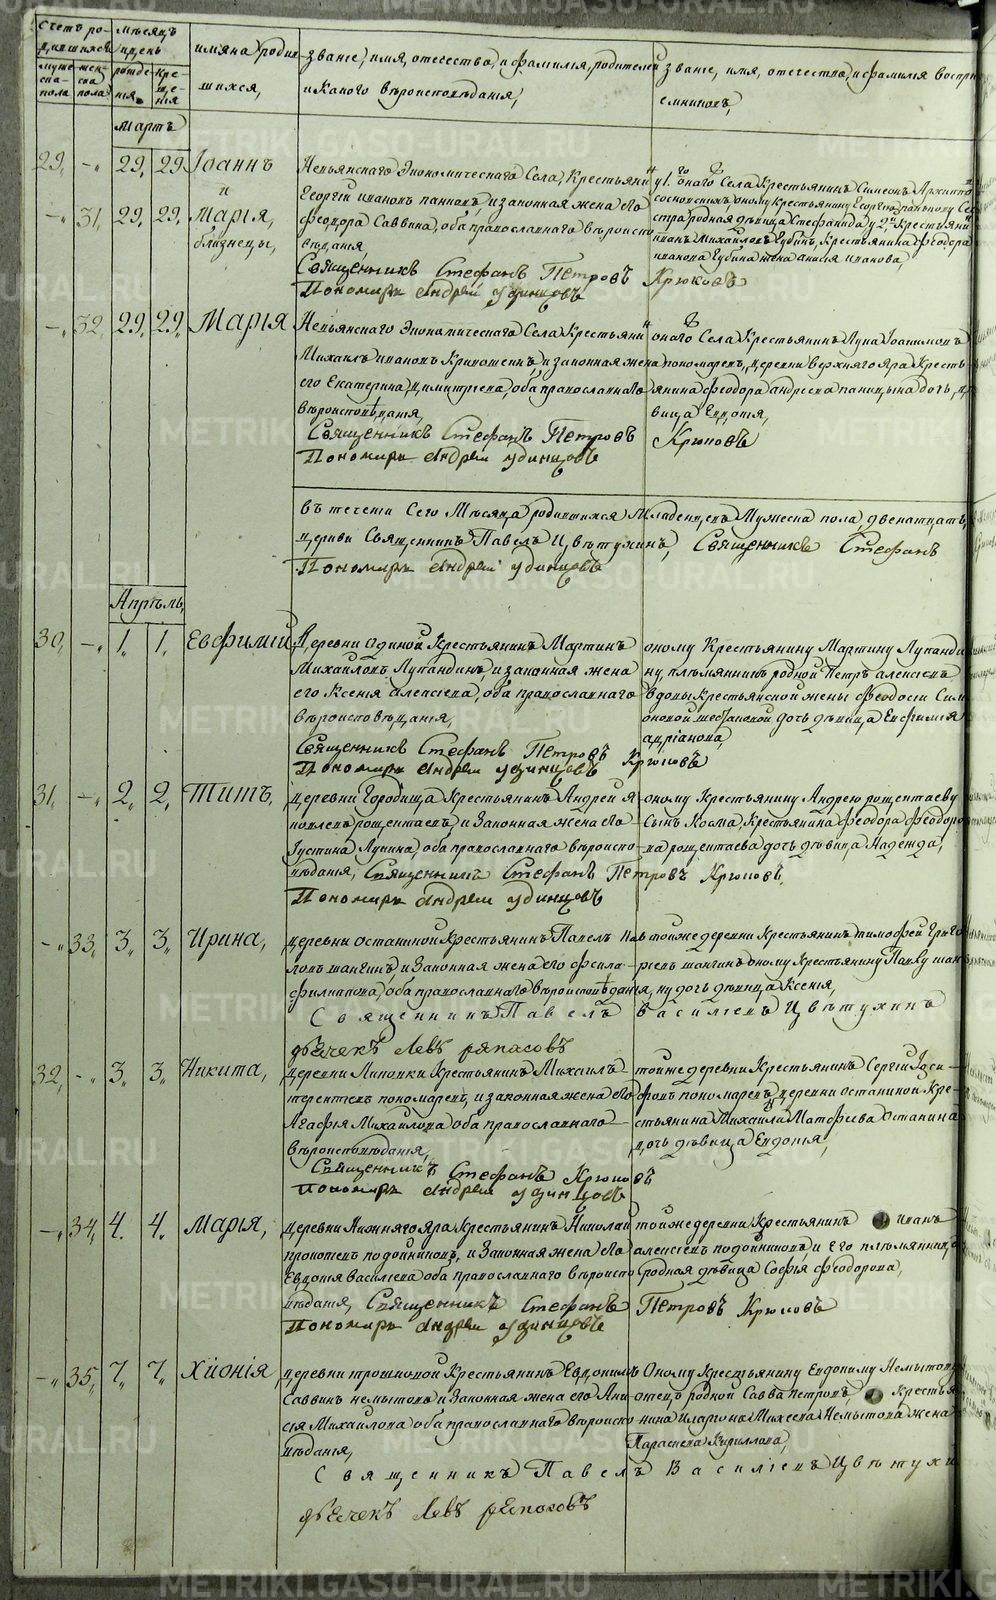 Счетъ родившихся
Мѣсяцъ и день
имяна родившихся,
званіе, имя, отечество, и фамилія, родителей и какого вѣроисповѣданія,
званіе, имя, отечество, и фамилія воспріемниковъ,
мужеска пола
женска пола
рожденія
крещенія
Мартъ
29, -„ 29, 29 Іоаннъ
и
-„ 31, 29, 29, Марія,
близнецы,
Невьянскаго Экономическаго Села, Крестьянинъ
Георгій Ивановъ и законная жена его
Феодора Саввина, оба православнаго вѣроиспо-
вѣданія
у 1го онаго Села Крестьянинъ Симеонъ
оному крестьянину Георгію
стра родная дѣвица Стефанида у 2й Крестьянинъ
Иванъ Михайловъ Губинъ, Крестьянина Феодора
Иванова Губина жена Иванова,
Священникъ Стефанъ Петровъ Крюковъ
Пономарь Андрей Удинцовъ
-„ 32, 29, 29, Марія
Невьянскаго Экономическаго Села Крестьянинъ
Михаилъ Ивановъ и законная жена
его Екатерина Димитріева, оба православнаго
вѣроисповѣданія,
онаго Села Крестьянинъ Лука
пономаревъ, деревни верхняго Яра Кресть-
янина Феодора Андреева дочь, дѣ-
вица Евдотія,
Священникъ Стефанъ Петровъ Крюковъ
Пономарь Андрей Удинцовъ
въ течени Сего Мѣсяца родившихся Младенцевъ Мужеска пола, двенатцать,
церкви Священникъ Павелъ Цвѣтухинъ, Священникъ Стефанъ
Пономарь Андрей Удинцовъ
Апрѣль,
30, -„ 1, 1, Евфимій,
Деревни Одиной Крестьянинъ Мартинъ
Михайловъ Лупандинъ, и законная жена
его Ксенія Алексіева, оба православнаго
вѣроисповѣданія,
оному Крестьянину Мартину Лупанди-
ну, племянникъ родной Петръ Алексіевъ
вдовы Крестьянской жены Феодосіи Сим-
оновой дочь дѣвица Евфимія
Адріанова,
Священникъ Стефанъ Петровъ Крюковъ
Пономарь Андрей Удинцовъ
31, -„ 2, 2, Титъ,
деревни Городища Крестьянинъ Андрей Я-
ковлевъ рощектаевъ, и Законная жена его
Іустина Лукина, оба православнаго вѣроиспо-
вѣданія,
оному Крестьянину Андрею рощектаеву
Сынъ Косма, Крестьянина Феодора Феодоро-
ва рощектаева дочь дѣвица Надежда,
Священникъ Стефанъ Петровъ Крюковъ,
Пономарь Андрей Удинцовъ
-„ 33, 3, 3, Ирина,
деревни останиной Крестьянинъ Павелъ
ловъ шангинъ, и Законная жена его
филиппова, оба православнаго вѣроисповѣданія,
тойже деревни Крестьянинъ Тимофей Григо-
ріевъ шангинъ оному Крестьянину Павлу шан-
ну дочь дѣвица Ксенія,
Священникъ Павелъ Василіевъ Цвѣтухинъ
дьячекъ Левъ ряпасовъ
32, -„ 3, 3, Никита,
деревни Липовки Крестьянинъ Михаилъ
терентіевъ пономаревъ, и законная жена его
Агафія Михайлова оба православнаго
вѣроисповѣданія,
тойже деревни Крестьянинъ Сергій Іоси-
фовъ пономаревъ, деревни останиной Кре-
стьянина Михаила Матфеева останина
дочь дѣвица Евдокія,
Священникъ Стефанъ Крюковъ
Пономарь Андрей Удинцовъ
-„ 34, 4, 4, Марія,
деревни Нижняго Яра Крестьянинъ Николай
прокопіевъ подойниковъ, и Законная жена его
Евдокія василіева оба православнаго вѣроиспо-
вѣданія,
тойже деревни Крестьянинъ Иванъ
алексіевъ подойниковъ, и Его племянница
родная дѣвица Софія Феодорова,
Священникъ Стефанъ Петровъ Крюковъ
Пономарь Андрей Удинцовъ
-„ 35, 7, 7, Хіонія,
деревни трошковой Крестьянинъ Евдокимъ
Саввинъ немытовъ и Законная жена его Ани-
сія Михайлова оба православнаго вѣроиспо-
вѣданія,
Оному Крестьянину Евдокиму Немытову
отецъ родной Савва Петровъ, Крестья-
нина Иларіона Михеева Немытова жена
Параскева Кириллова,
Священникъ Павелъ Василіевъ Цвѣтухи
дьячекъ Левъ ряпасовъ
METRIKI.GASO-URAL.RU